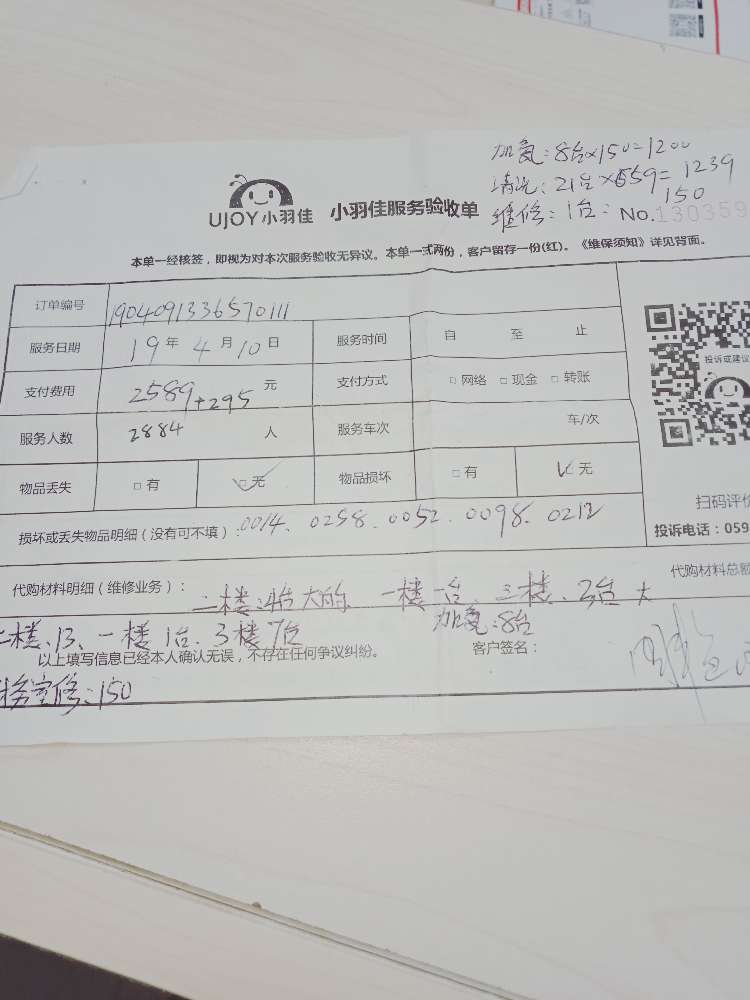 加氟：8台×150=1200
清洗：21台×59=1239
维修：1台：150
UJOY小羽佳 小羽佳服务验收单 No.130359
本单一经核签，即视为对本次服务验收无异议。本单一式两份，客户留存一份(红)。《维保须知》详见背面。
订单编号 1904091336570111
服务日期 19年4月10日 服务时间 自 至 止
支付费用 2589+295元 支付方式 □网络 □现金 □转账
投诉或建议
服务人数 2884 人 服务车次 车/次
物品丢失 □有 □无 物品损坏 □有 无
扫码评价
损坏或丢失物品明细（没有可不填）：0014、0258、0052、0098、0212
投诉电话：059
代购材料明细（维修业务）： 二楼：4台大的、一楼一台、三楼、2台大
代购材料总额
二楼、13、一楼1台、3楼7台 加氟：8台
以上填写信息已经本人确认无误，不存在任何争议纠纷。 客户签名：
务室修：150